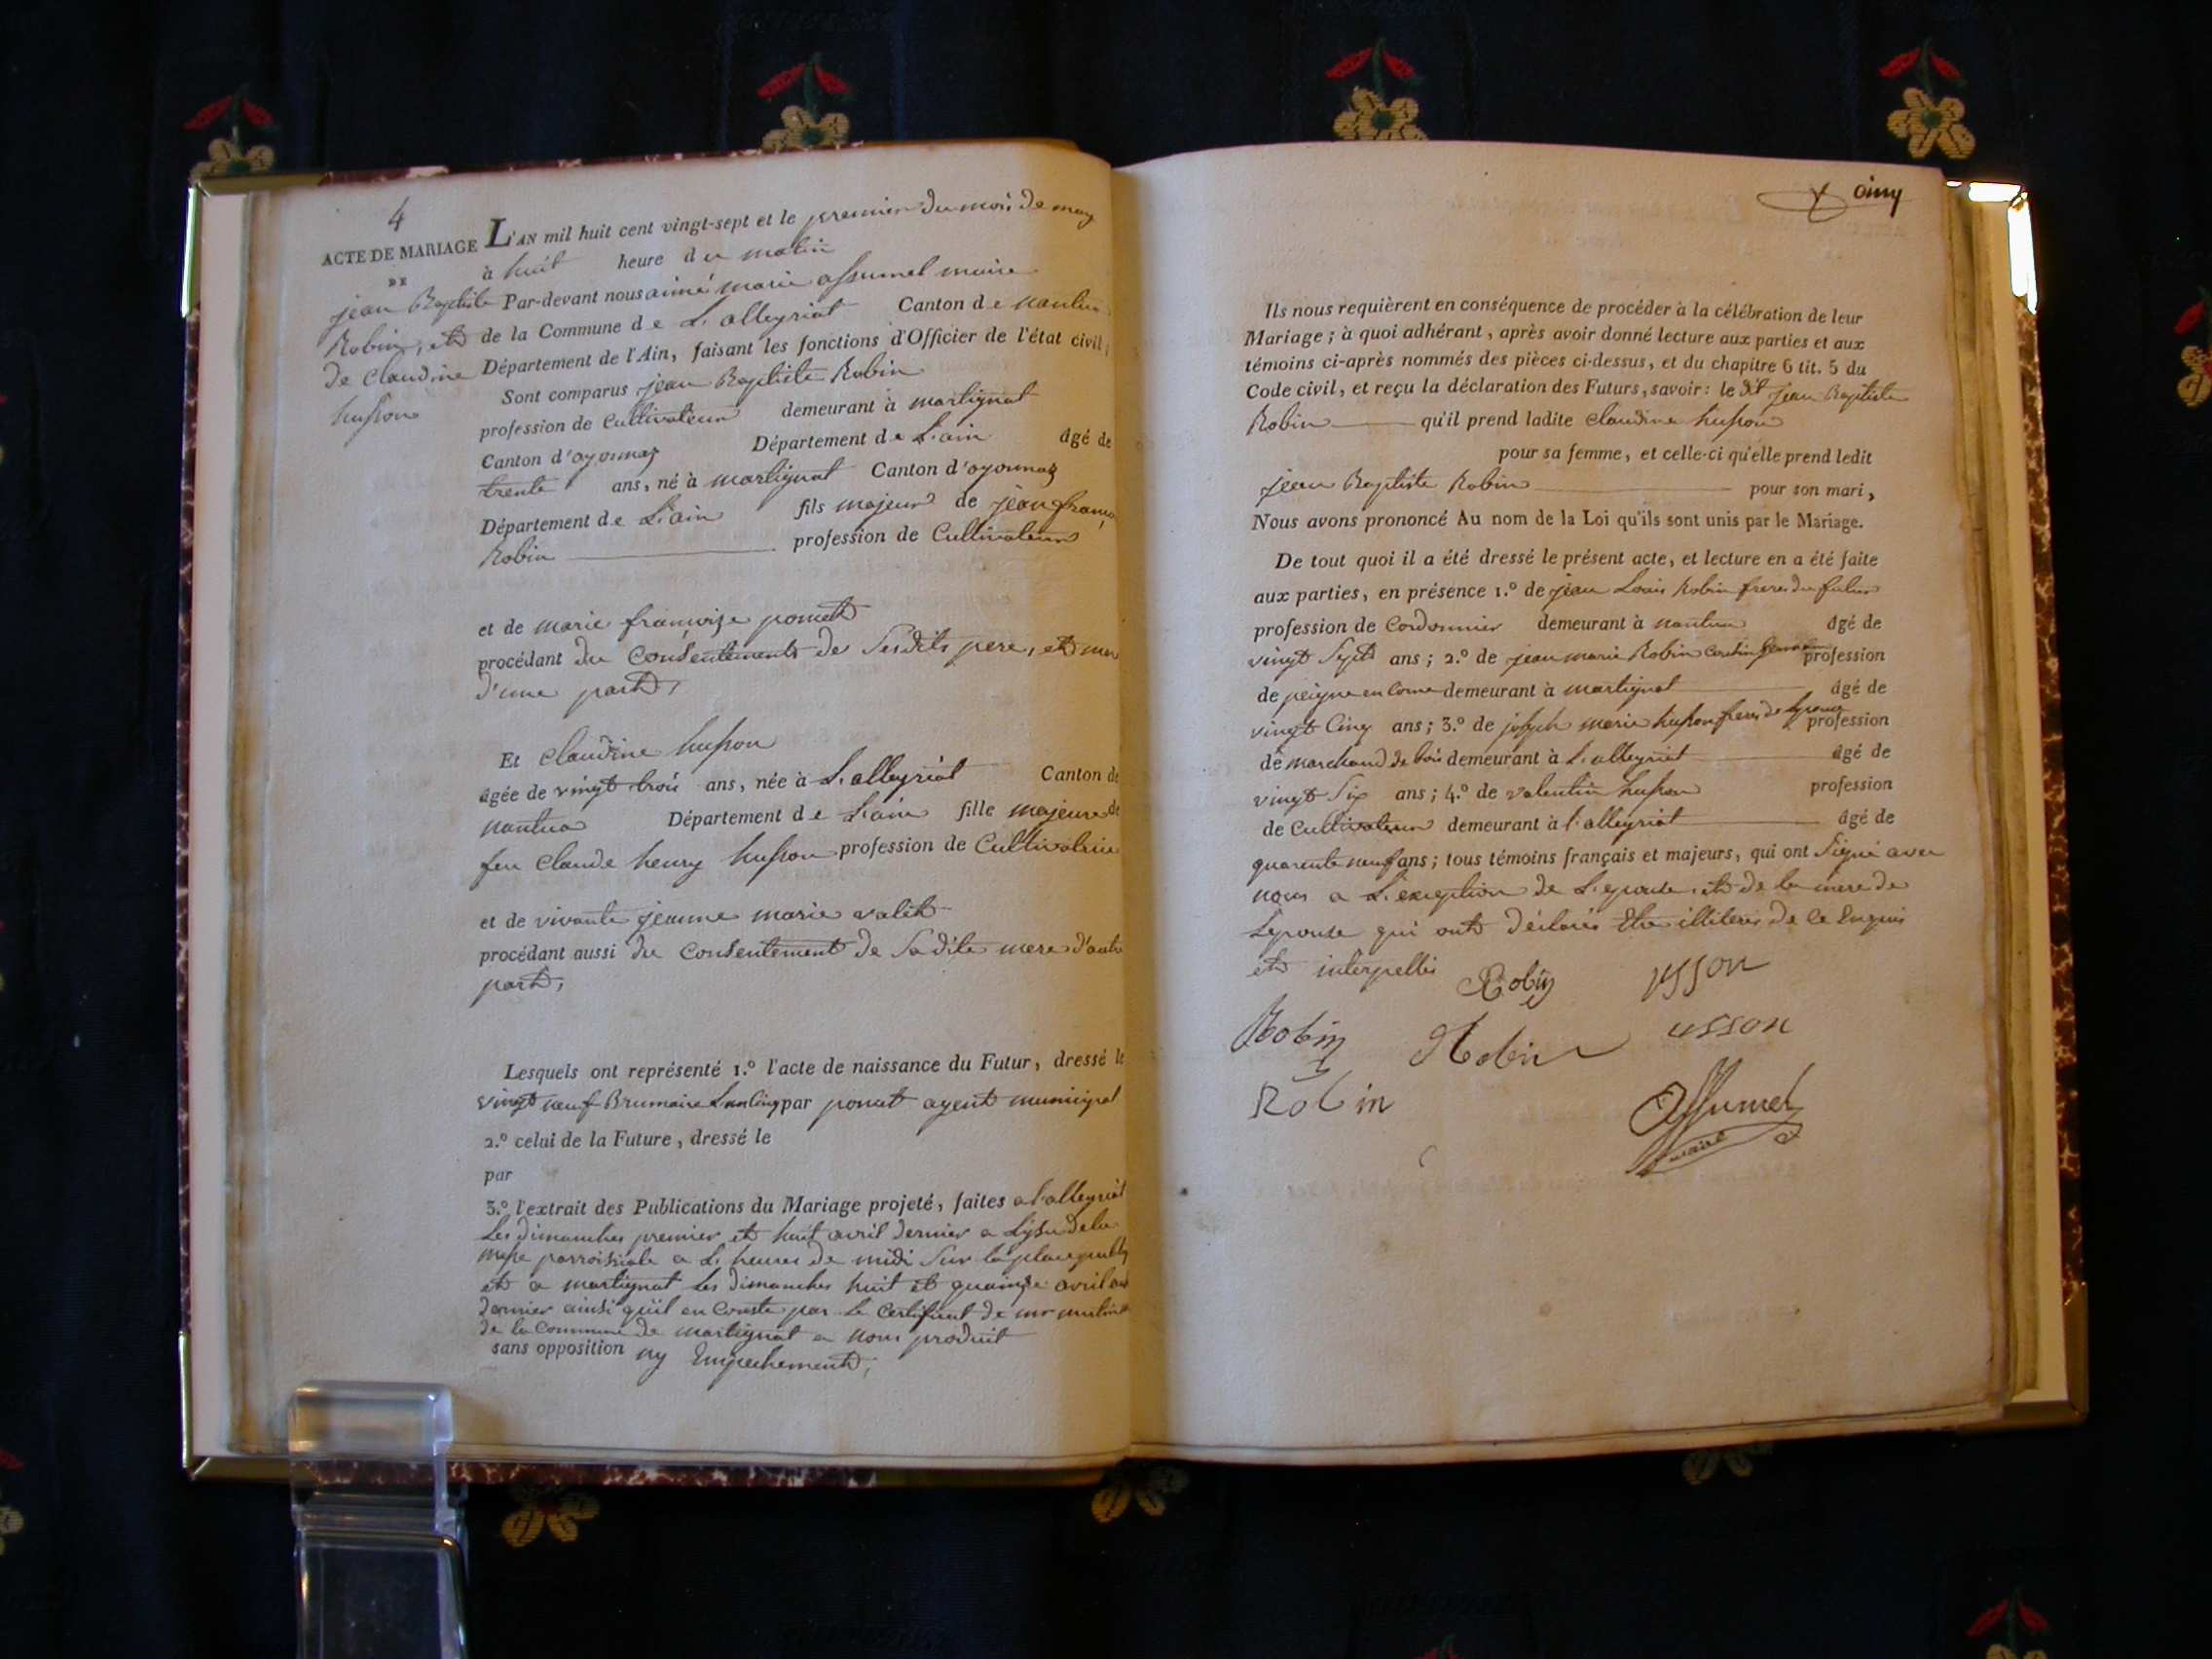 4
ACTE DE MARIAGE
DE
jean Baptiste
Robin, et
de claudine
husson
L'AN mil huit cent vingt-sept et le premier du mois de may
à huit heure du matin
Par-devant nous aimé marie assumel maire
de la Commune de L'alleyriat Canton de nantua
Département de l'Ain, faisant les fonctions d'Officier de l'état civil,
Sont comparus jean Baptiste Robin
profession de Cultivateur demeurant à martignat
Canton d'oyonnaz Département de L'ain âgé de
trente ans, né à martignat Canton d'oyonnaz
Département de L'ain fils majeur de jean franco
Robin profession de Cultivateur
et de marie françoize ponut
procédant du Consentements de Sesdits pere, et mer
d'une part,
Et claudine husson
âgée de vingt trois ans, née à L'alleyriat Canton de
nantua Département de L'ain fille majeure de
feu claude henry husson profession de Cultivatrice
et de vivante jeanne marie valet
procédant aussi du Consentement de Sadite mere d'autre
part,
Lesquels ont représenté 1.º l'acte de naissance du Futur, dressé le
vingt neuf Brumaire L'an cinq par ponut agent municipal
2.º celui de la Future, dressé le
par
3.º l'extrait des Publications du Mariage projeté, faites a l'alleyriat
Les dimanches premier et huit avril dernier a L'issu de la
messe parroissiale a L'heure de midi Sur la place publi
et a martignat Les dimanches huit et quainze avril
dernier ainsi qu'il en Conste par Le Certificat de mr
de la Commune de martignat a nous produit
sans opposition ny Empechement,
cinq
Ils nous requièrent en conséquence de procéder à la célébration de leur
Mariage; à quoi adhérant, après avoir donné lecture aux parties et aux
témoins ci-après nommés des pièces ci-dessus, et du chapitre 6 tit. 5 du
Code civil, et reçu la déclaration des Futurs, savoir: le dt jean Baptiste
Robin qu'il prend ladite claudine husson
pour sa femme, et celle-ci qu'elle prend ledit
jean Baptiste Robin pour son mari,
Nous avons prononcé Au nom de la Loi qu'ils sont unis par le Mariage.
De tout quoi il a été dressé le présent acte, et lecture en a été faite
aux parties, en présence 1.º de jean Louis Robin frere du futur
profession de Cordonnier demeurant à nantua âgé de
vingt Sept ans; 2.º de jean marie Robin Cousin Germain profession
de peigne en Corne demeurant à martignat âgé de
vingt Cinq ans; 3.º de joseph marie husson frere de lepouse profession
de marchand de bois demeurant à L'alleyriat âgé de
vingt Six ans; 4.º de valentin husson profession
de Cultivateur demeurant à l'alleyriat âgé de
quarente neuf ans; tous témoins français et majeurs, qui ont Signé avec
nous a L'exeption de L'epouse, et de la mere de
Lepouse qui ont déclarés Etre illiteres de ce Enquis
et interpellés
Robin usson
Robin Robin usson
Robin Assumel
maire